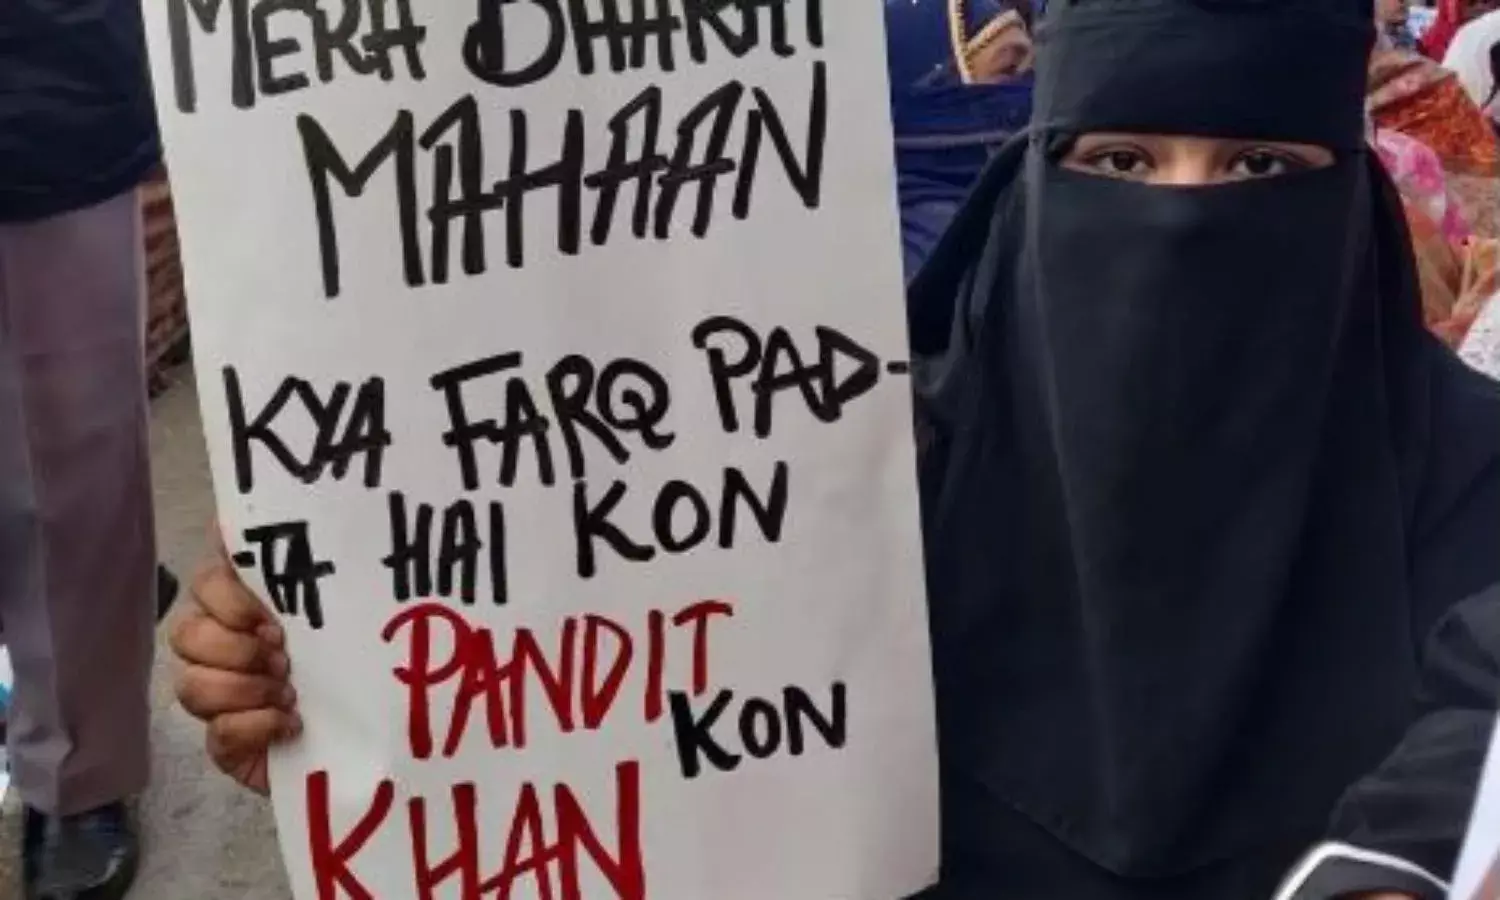 MERA BHARAT
MAHAAN
KYA FARQ PAD-
-TA HAI KON
PANDIT KON
KHAN